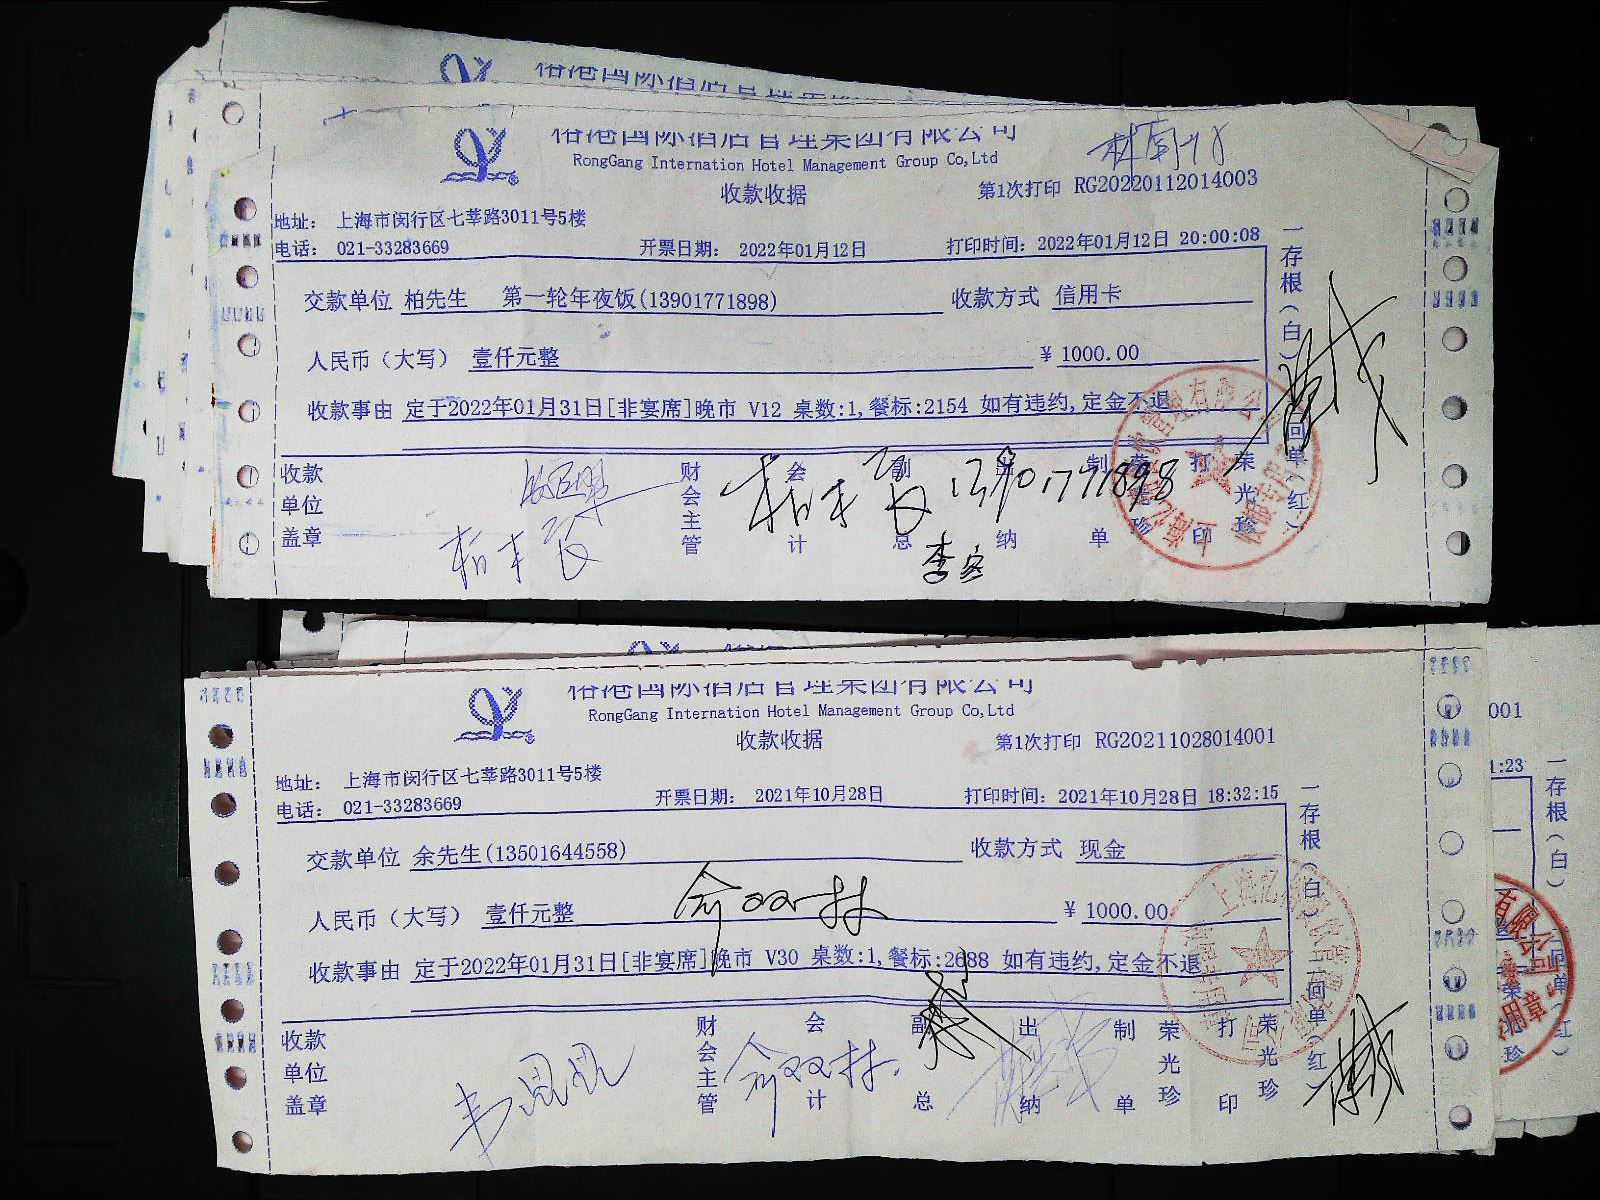 RongGang Internation Hotel Management Group Co,Ltd
收款收据
第1次打印 RG20220112014003
地址： 上海市闵行区七莘路3011号5楼
电话： 021-33283669 开票日期： 2022年01月12日 打印时间：2022年01月12日 20:00:08
交款单位 柏先生 第一轮年夜饭(13901771898) 收款方式 信用卡
人民币（大写） 壹仟元整 ¥ 1000.00
收款事由 定于2022年01月31日[非宴席]晚市 V12 桌数:1,餐标:2154 如有违约,定金不退
一存根（白） 回单（红）
收款单位盖章 财会主管 会计 副总 出纳 制单 荣光珍 打印 荣光珍
13901771898
RongGang Internation Hotel Management Group Co,Ltd
收款收据
第1次打印 RG20211028014001
地址： 上海市闵行区七莘路3011号5楼
电话： 021-33283669 开票日期： 2021年10月28日 打印时间：2021年10月28日 18:32:15
交款单位 余先生(13501644558) 收款方式 现金
人民币（大写） 壹仟元整 ¥ 1000.00
俞双林
收款事由 定于2022年01月31日[非宴席]晚市 V30 桌数:1,餐标:2688 如有违约,定金不退
一存根（白） 回单（红）
收款单位盖章 财会主管 会计 副总 出纳 制单 荣光珍 打印 荣光珍
俞双林
001
1:23
一存根（白） 回单（红）